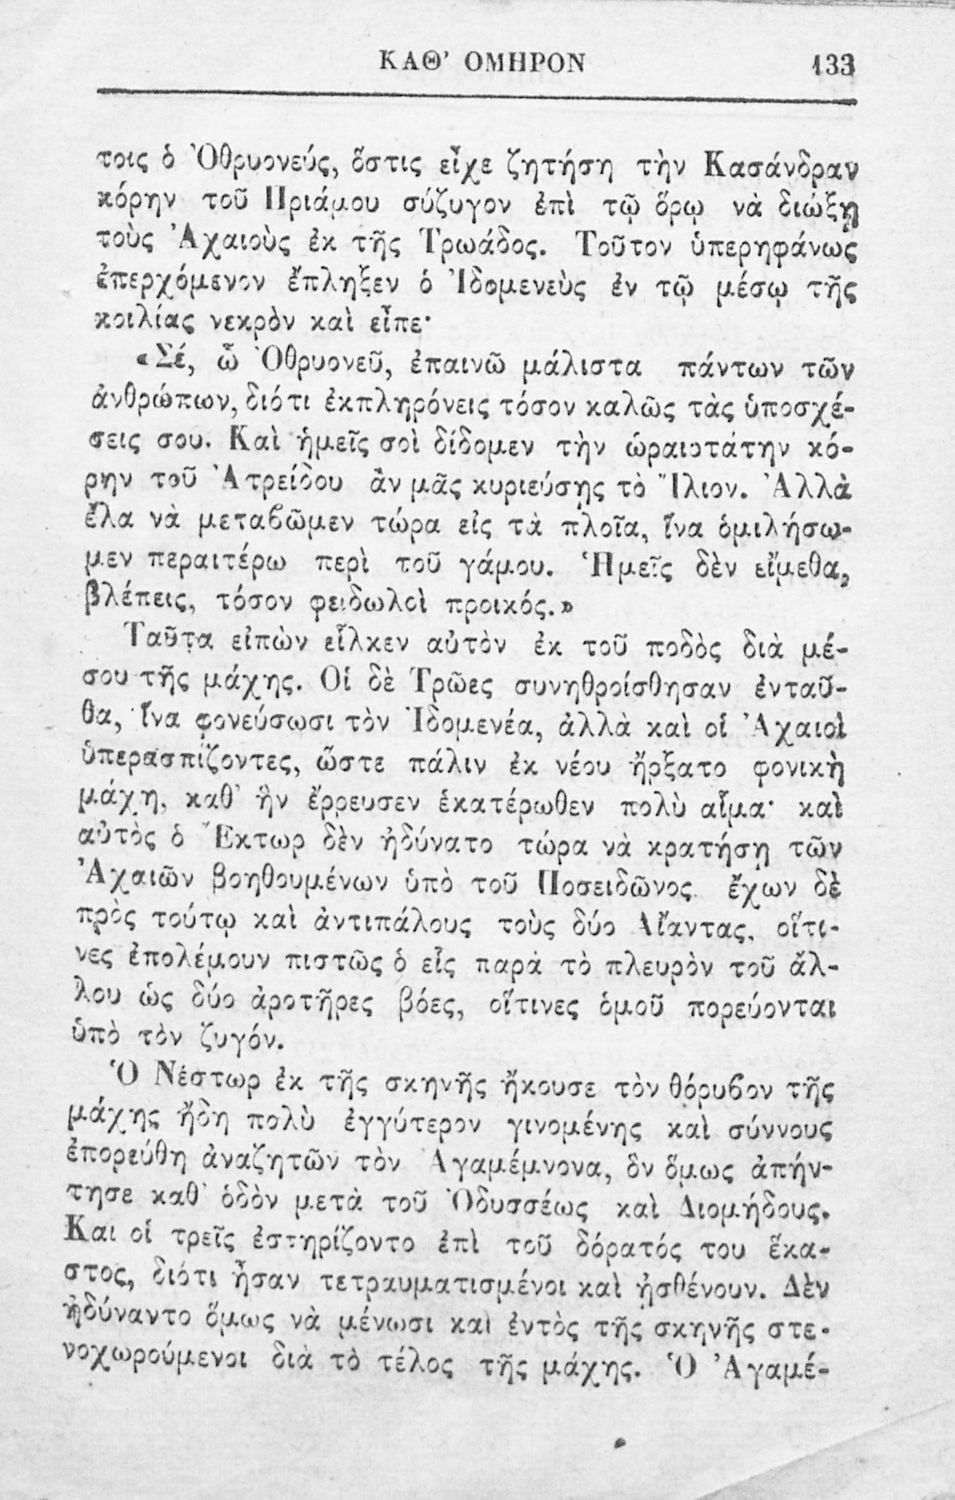 ΚΑΘ’ ΟΜΗΡΟΝ 133
τοις ὁ Ὀθρυονεύς, ὅστις εἶχε ζητήση τὴν Κασάνδραν
κόρην τοῦ Πριάμου σύζυγον ἐπὶ τῷ ὅρῳ νὰ διώξῃ
τοὺς Ἀχαιοὺς ἐκ τῆς Τρωάδος. Τοῦτον ὑπερηφάνως
ἐπερχόμενον ἔπληξεν ὁ Ἰδομενεὺς ἐν τῷ μέσῳ τῆς
κοιλίας νεκρὸν καὶ εἶπε·
«Σέ, ὦ Ὀθρυονεῦ, ἐπαινῶ μάλιστα πάντων τῶν
ἀνθρώπων, διότι ἐκπληρόνεις τόσον καλῶς τὰς ὑποσχέ-
σεις σου. Καὶ ἡμεῖς σοὶ δίδομεν τὴν ὡραιοτάτην κό-
ρην τοῦ Ἀτρείδου ἂν μᾶς κυριεύσῃς τὸ Ἴλιον. Ἀλλὰ
ἔλα νὰ μεταβῶμεν τώρα εἰς τὰ πλοῖα, ἵνα ὁμιλήσω-
μεν περαιτέρω περὶ τοῦ γάμου. Ἡμεῖς δὲν εἴμεθα,
βλέπεις, τόσον φειδωλοὶ προικός.»
Ταῦτα εἰπὼν εἷλκεν αὐτὸν ἐκ τοῦ ποδὸς διὰ μέ-
σου τῆς μάχης. Οἱ δὲ Τρῶες συνηθροίσθησαν ἐνταῦ-
θα, ἵνα φονεύσωσι τὸν Ἰδομενέα, ἀλλὰ καὶ οἱ Ἀχαιοὶ
ὑπερασπίζοντες, ὥστε πάλιν ἐκ νέου ἤρξατο φονικὴ
μάχη, καθ’ ἣν ἔρρευσεν ἑκατέρωθεν πολὺ αἷμα· καὶ
αὐτὸς ὁ Ἕκτωρ δὲν ἠδύνατο τώρα νὰ κρατήσῃ τῶν
Ἀχαιῶν βοηθουμένων ὑπὸ τοῦ Ποσειδῶνος. ἔχων δὲ
πρὸς τούτῳ καὶ ἀντιπάλους τοὺς δύο Αἴαντας, οἵτι-
νες ἐπολέμουν πιστῶς ὁ εἷς παρὰ τὸ πλευρὸν τοῦ ἄλ-
λου ὡς δύο ἀροτῆρες βόες, οἵτινες ὁμοῦ πορεύονται
ὑπὸ τὸν ζυγόν.
Ὁ Νέστωρ ἐκ τῆς σκηνῆς ἤκουσε τὸν θόρυβον τῆς
μάχης ἤδη πολὺ ἐγγύτερον γινομένης καὶ σύννους
ἐπορεύθη ἀναζητῶν τὸν Ἀγαμέμνονα, ὃν ὅμως ἀπήν-
τησε καθ’ ὁδὸν μετὰ τοῦ Ὀδυσσέως καὶ Διομήδους.
Καὶ οἱ τρεῖς ἐστηρίζοντο ἐπὶ τοῦ δόρατός του ἕκα-
στος, διότι ἦσαν τετραυματισμένοι καὶ ἠσθένουν. Δὲν
ἠδύναντο ὅμως νὰ μένωσι καὶ ἐντὸς τῆς σκηνῆς στε-
νοχωρούμενοι διὰ τὸ τέλος τῆς μάχης. Ὁ Ἀγαμέ-